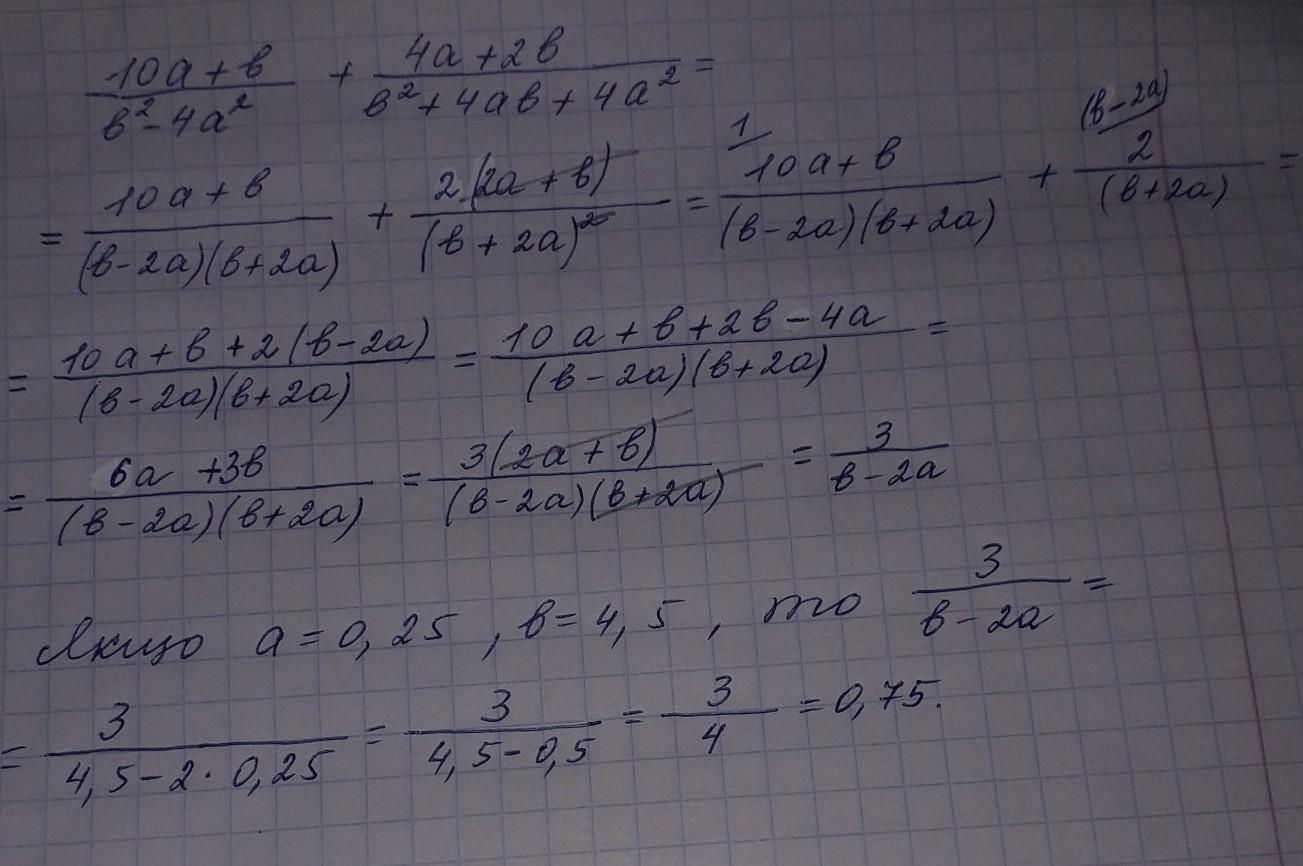 (10a + b)/(b² - 4a²) + (4a + 2b)/(b² + 4ab + 4a²) =
= (10a + b)/((b - 2a)(b + 2a)) + (2·(2a + b))/((b + 2a)²) = 1/ (10a + b)/((b - 2a)(b + 2a)) + (b - 2a)/ 2/((b + 2a)) =
= (10a + b + 2(b - 2a))/((b - 2a)(b + 2a)) = (10a + b + 2b - 4a)/((b - 2a)(b + 2a)) =
= (6a + 3b)/((b - 2a)(b + 2a)) = (3(2a + b))/((b - 2a)(b + 2a)) = 3/(b - 2a)
Якщо a = 0,25, b = 4,5, то 3/(b - 2a) =
= 3/(4,5 - 2 · 0,25) = 3/(4,5 - 0,5) = 3/4 = 0,75.